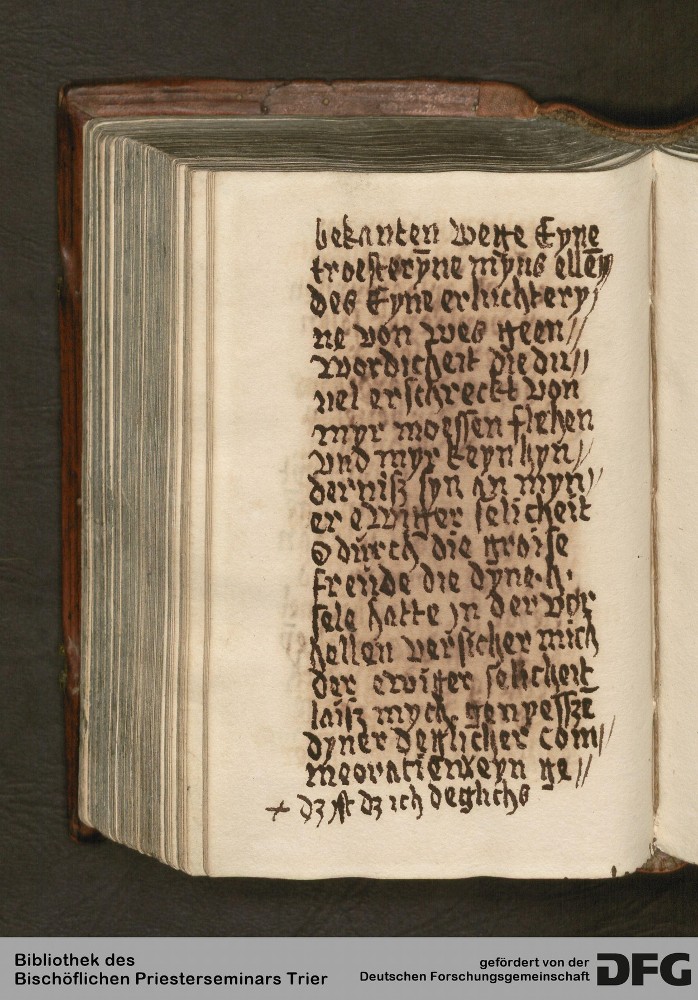 bekanten wege Eyne
troesterȳne myns ellen
des Eyne erluchtery
ne von wes geen//
wordicheit die du//
uel erschreckt von
myr moessen flehen
vnd myr keyn hyn//
derniſz syn an myn//
er ewiger selicheit
O durch die groisse
freude die dyne . h .
sele hatte in der vor
hellen versicher mich
der ewiger selicheit
laiſz mych genyesszē
dyner deglicher com//
meoratien keyn ge//
+ dz ist dz ich deglichs
Bibliothek des
Bischöflichen Priesterseminars Trier
gefördert von der
Deutschen Forschungsgemeinschaft
DFG